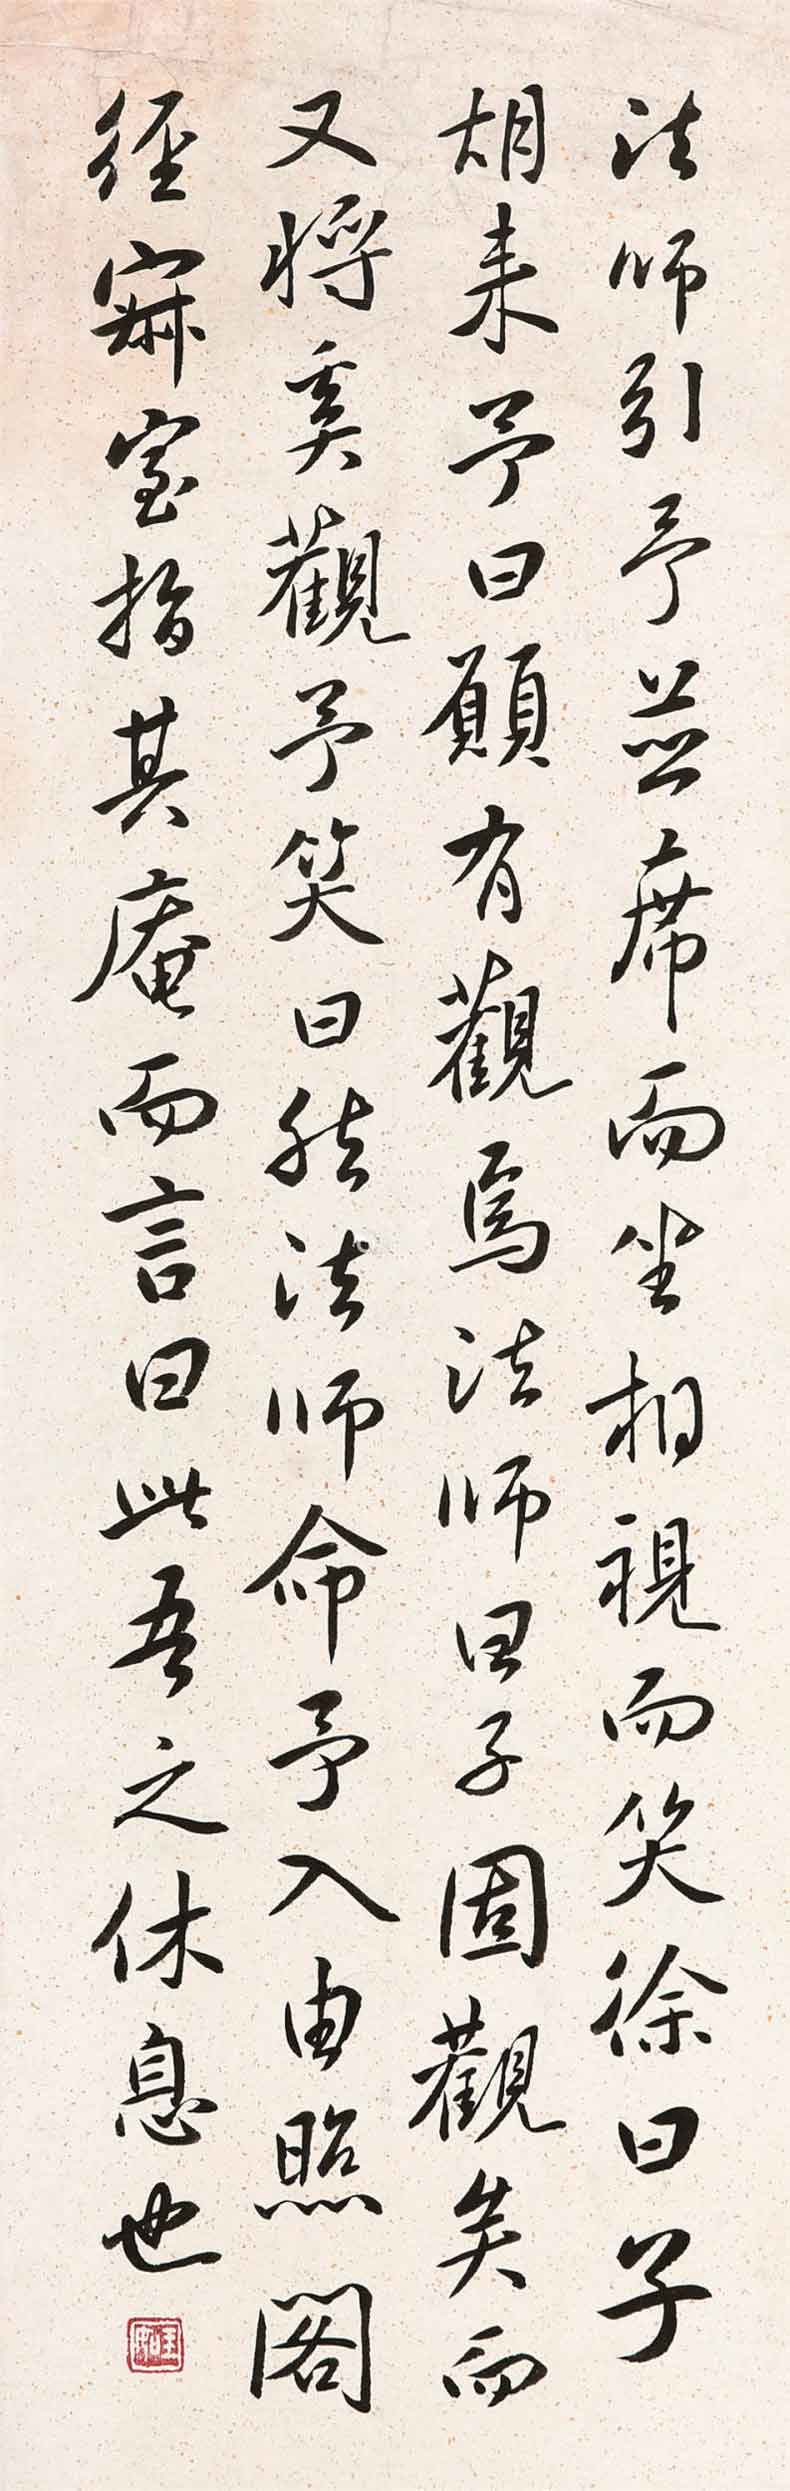 法師引予並席而坐相視而笑徐曰子
胡來予曰願有觀焉法師曰子固觀矣而
又將奚觀予笑曰然法師命予入由照閣
徑寐室指其庵而言曰此吾之休息也